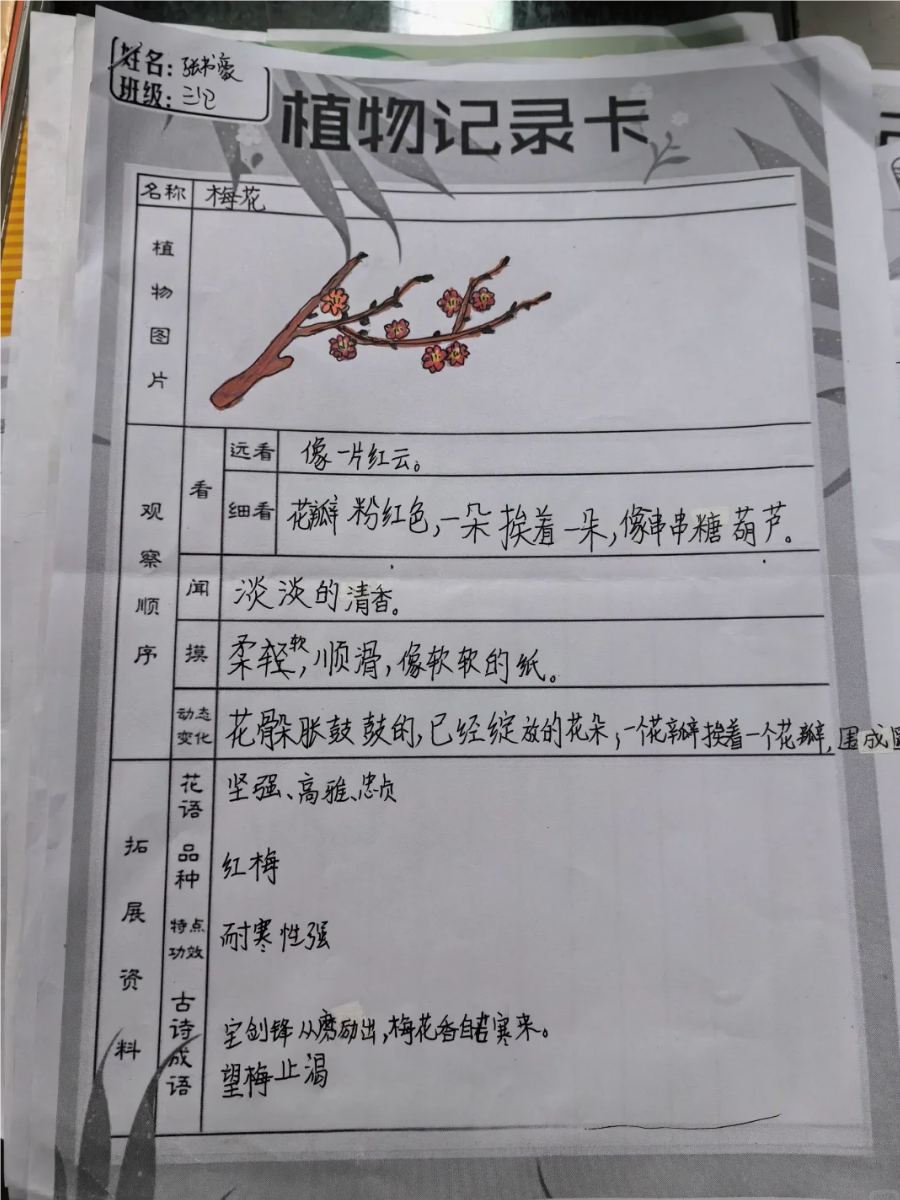 姓名：张书豪
班级：三(2)
植物记录卡
名称 梅花
植物图片
观察顺序
看
远看 像一片红云。
细看 花瓣粉红色，一朵挨着一朵，像串串糖葫芦。
闻 淡淡的清香。
摸 柔软，顺滑，像软软的纸。
动态变化 花骨朵胀鼓鼓的，已经绽放的花朵，一个花瓣挨着一个花瓣，围成圆
拓展资料
花语 坚强、高雅、忠贞
品种 红梅
特点功效 耐寒性强
古诗成语 宝剑锋从磨励出，梅花香自苦寒来。
望梅止渴